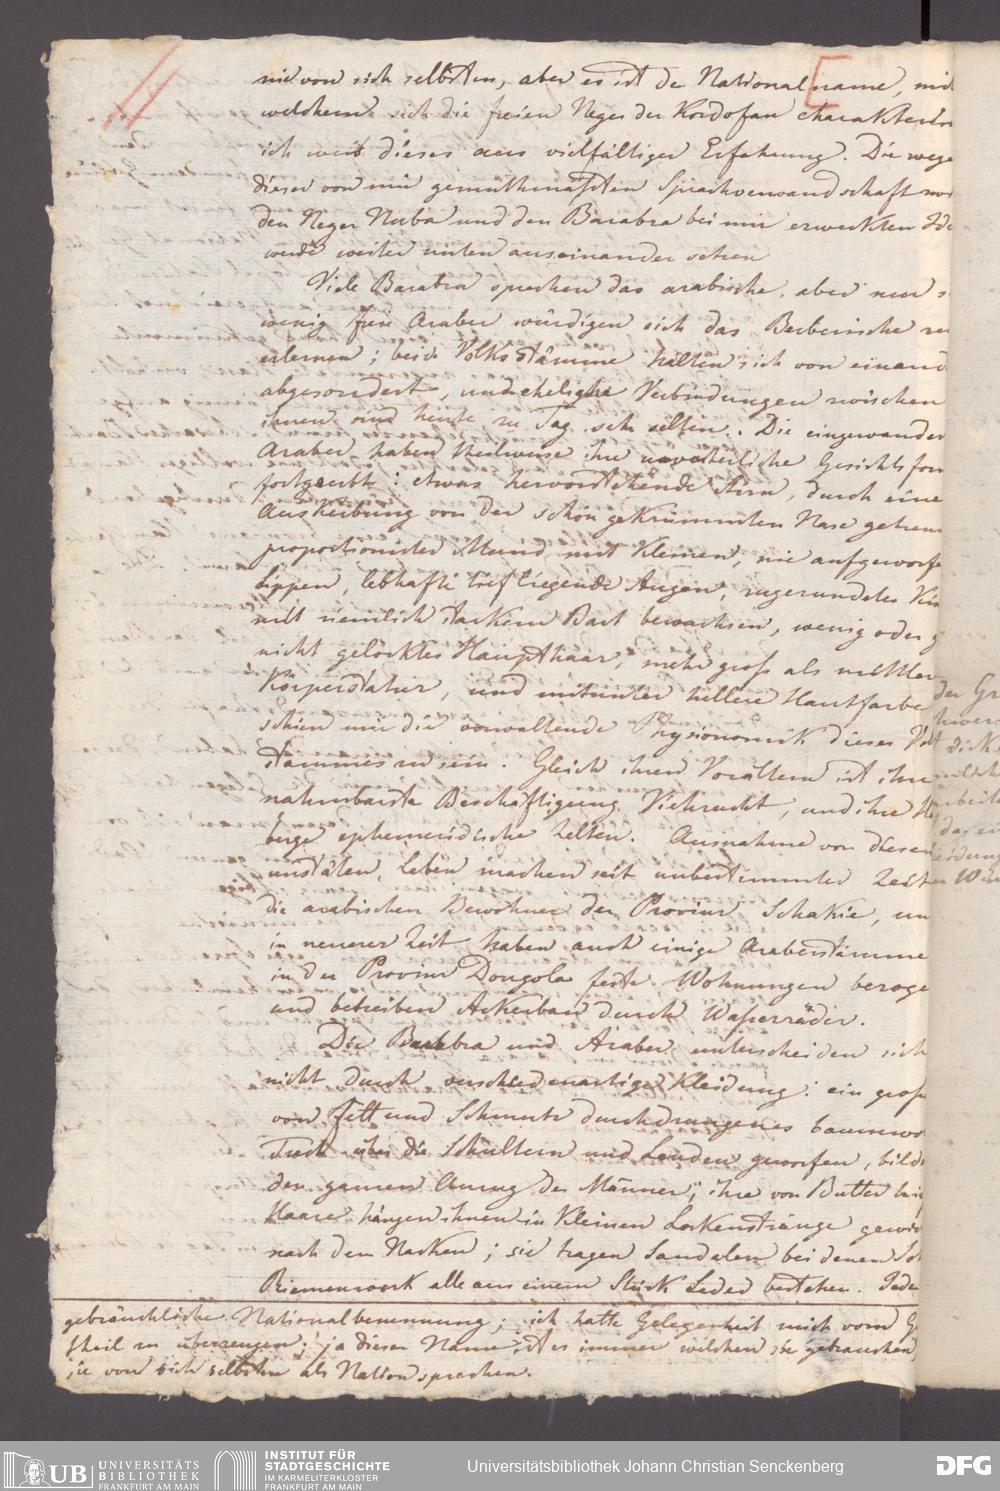 nie von sich selbsten, aber es ist der National name, mit
welchem sich die freien Neger der Kordofan charakteris
ich weis dieses aus vielfältiger Erfahrung. Die wege
dieser von mir gemuthmasten Sprachverwandschaft zwi
den Neger Nuba und den Barabra bei mir erweckten Ide
werde weiter unten auseinander setzen
Viele Barabra sprechen das arabische, aber nur s
wenig freie Araber würdigen sich das Berberische zu
erlernen; beide Volksstämme halten sich von einand
abgesondert, und eheliche Verbindungen zwischen
ihnen sind heute zu Tag sehr selten. Die eingewander
Araber haben theilweise ihre urväterliche Gesichtsfor
fortgeerbt: etwas hervorstehende Stirn, durch eine
Auskerbung von der schön gekrümmten Nase getren
proportionirter Mund mit kleinen, nie aufgeworfe
Lippen, lebhafte tief liegende Augen, zugerundetes Kin
mit ziemlich starkem Bart bewachsen, wenig oder g
nicht gelocktes Haupthaar, mehr groß als mittler
Körperstatur, und mitunter hellere Hautfarbe
schien mir die vorwaltende Physionomik dieses Vol
stammes zu sein. Gleich ihren Voraltern ist ihre
nahmbarste Beschäftigung Viehzucht, und ihre He
berge ephemeridische Zelten. Ausnahme von diesem
unstäten Leben machen seit unbestimmter Zeit
die arabischen Bewohner der Provinz Schakie, un
in neuerer Zeit haben auch einige Araberstämme
in der Provinz Dongola feste Wohnungen bezoge
und betreiben Ackerbau durch Wasserräder.
Die Barabra und Araber unterscheiden sich
nicht durch verschiedenartige Kleidung: ein gross
von Fett und Schmutz durchdrungenes baumwol
Tuch über die Schultern und Lenden geworfen, bilde
den ganzen Anzug der Männer; ihre von Butter
Haare hängen ihnen in kleinen Lockensträngen
nach dem Nacken; sie tragen Sandalen bei denen
Riemenwerk alle aus einem Stück Leder bestehen. Jede
gebräuchliche Nationalbenennung; ich hatte Gelegenheit mich vom Ge
theil zu überzeugen; ja dieser Name ist es immer welchen sie gebrauchen,
sie von sich selbsten als Nation sprechen.
der Gr
UB UNIVERSITÄTS
BIBLIOTHEK
FRANKFURT AM MAIN
INSTITUT FÜR
STADTGESCHICHTE
IM KARMELITERKLOSTER
FRANKFURT AM MAIN
Universitätsbibliothek Johann Christian Senckenberg
DFG